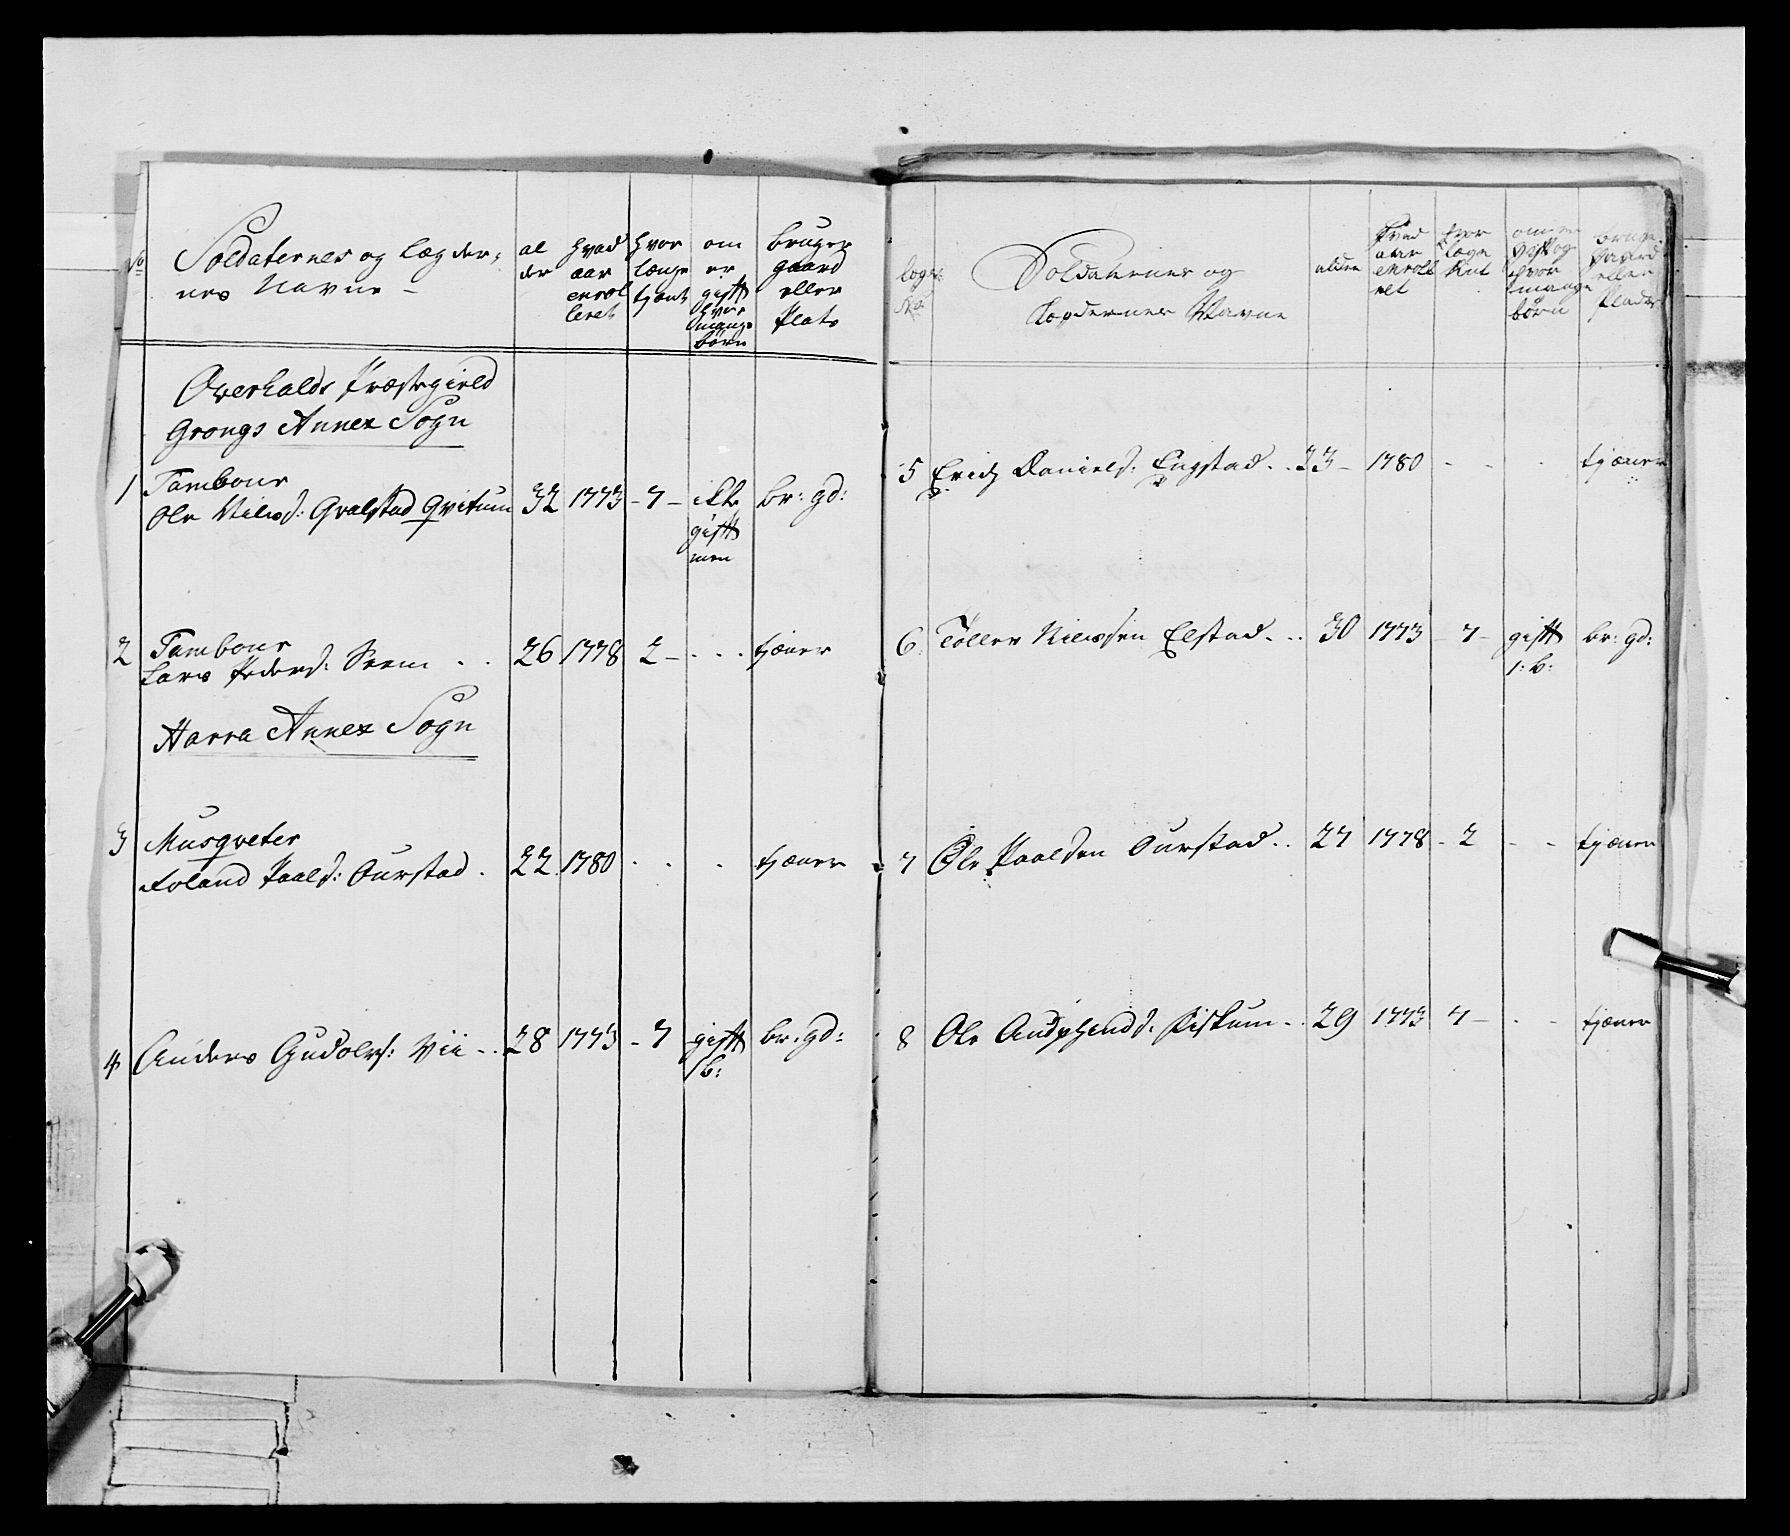 No
Soldaternes og Lægder-
nes Navne -
al
der
hvad
aar
enrol
leret
hvor
længe
tjent
om
er
gift
hvor
mange
børn
bruger
gaard
eller
Plats
Overhalds Præstegield
Grongs Annex Sogn
1 Tambour
Ole Nilss: Qvalstad Qvitum 32 1773 - 7 - ikke br: gd:
gift
men
2 Tambour
Lars Peders: Seem . . 26 1778 2 - . . . tjæner
Harra Annex Sogn
3 Musqveter
Roland Paals: Ourstad . 22 1780 . . . tjæner
4 Anders Gudolvs: Vii - . 28 1773 - 7 gift br: gd:
1 b:
Soldaternes og
Lægdernes Navne
alder
hvad
aar
enroll
ret
hvor
længe
tient
om er
gift og
hvor
mange
børn
bruger
gaard
eller
Plads
5 Erich Daniels: Engstad . . 23 - 1780 - - . tjæner
6 Tøller Nilssen Elstad . . . 30 1773 - 7 - gift br: gd:
1: b:
7 Ole Paalsen Ourstad . . 27 1778 - 2 - - tjæner
8 Ole Fiskum - . 29 1773 7 - . - tjæner